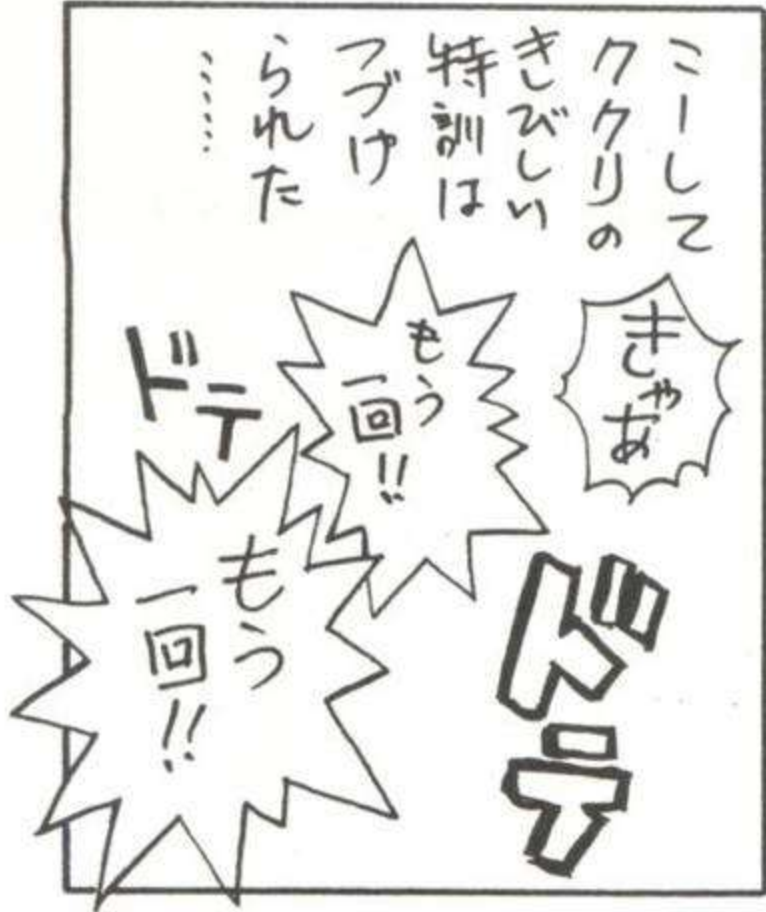 こーして
ククリの
きびしい
特訓は
つづけ
られた
……
きゃあ
ドテ
もう
一回!!
ドテ
もう
一回!!